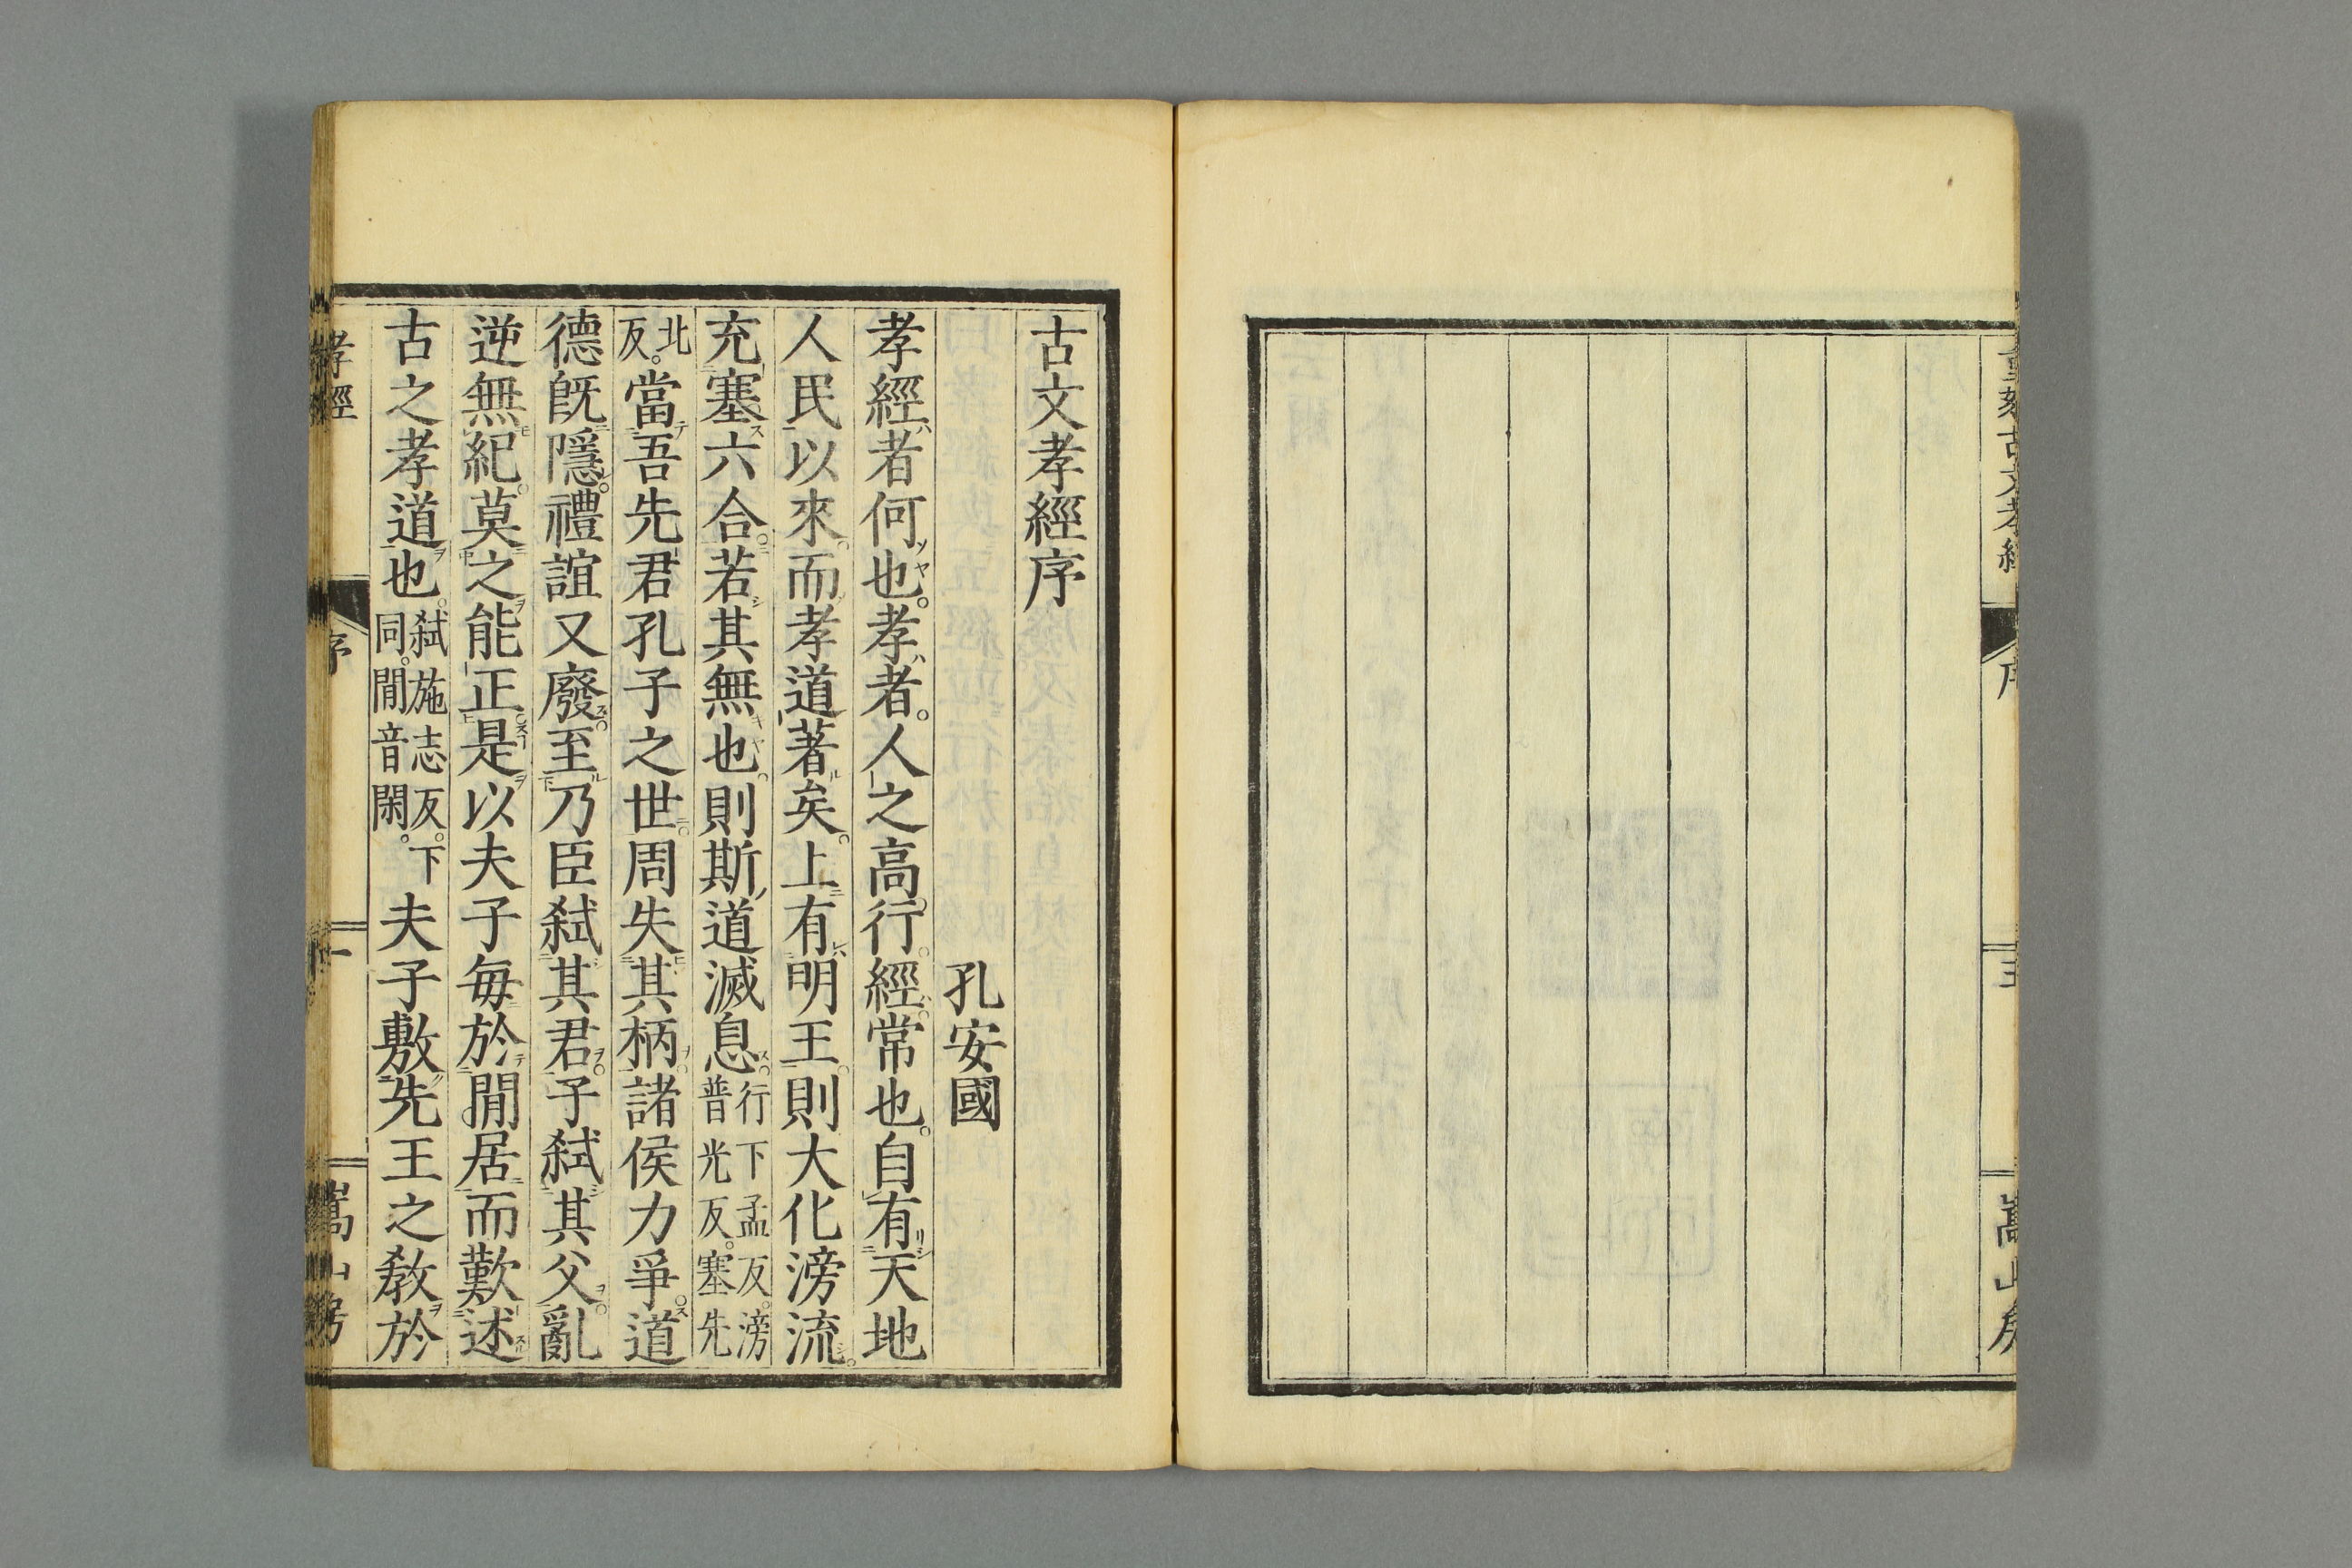 重刻古文孝經
序
嵩山房
古文孝經序
孔安國
孝經者何也。孝者。人之高行。經常也。自有天地
人民以來。而孝道著矣。上有明王。則大化滂流。
充塞六合。若其無也。則斯道滅息。行下孟反。滂普光反。塞先
北反。當吾先君孔子之世。周失其柄。諸侯力爭。道
德既隱。禮誼又廢。至乃臣弑其君。子弑其父。亂
逆無紀。莫之能正。是以夫子每於閒居而歎述
古之孝道也。弑施志反。下同。閒音閑。夫子敷先王之教於
孝經
序
一
嵩山房